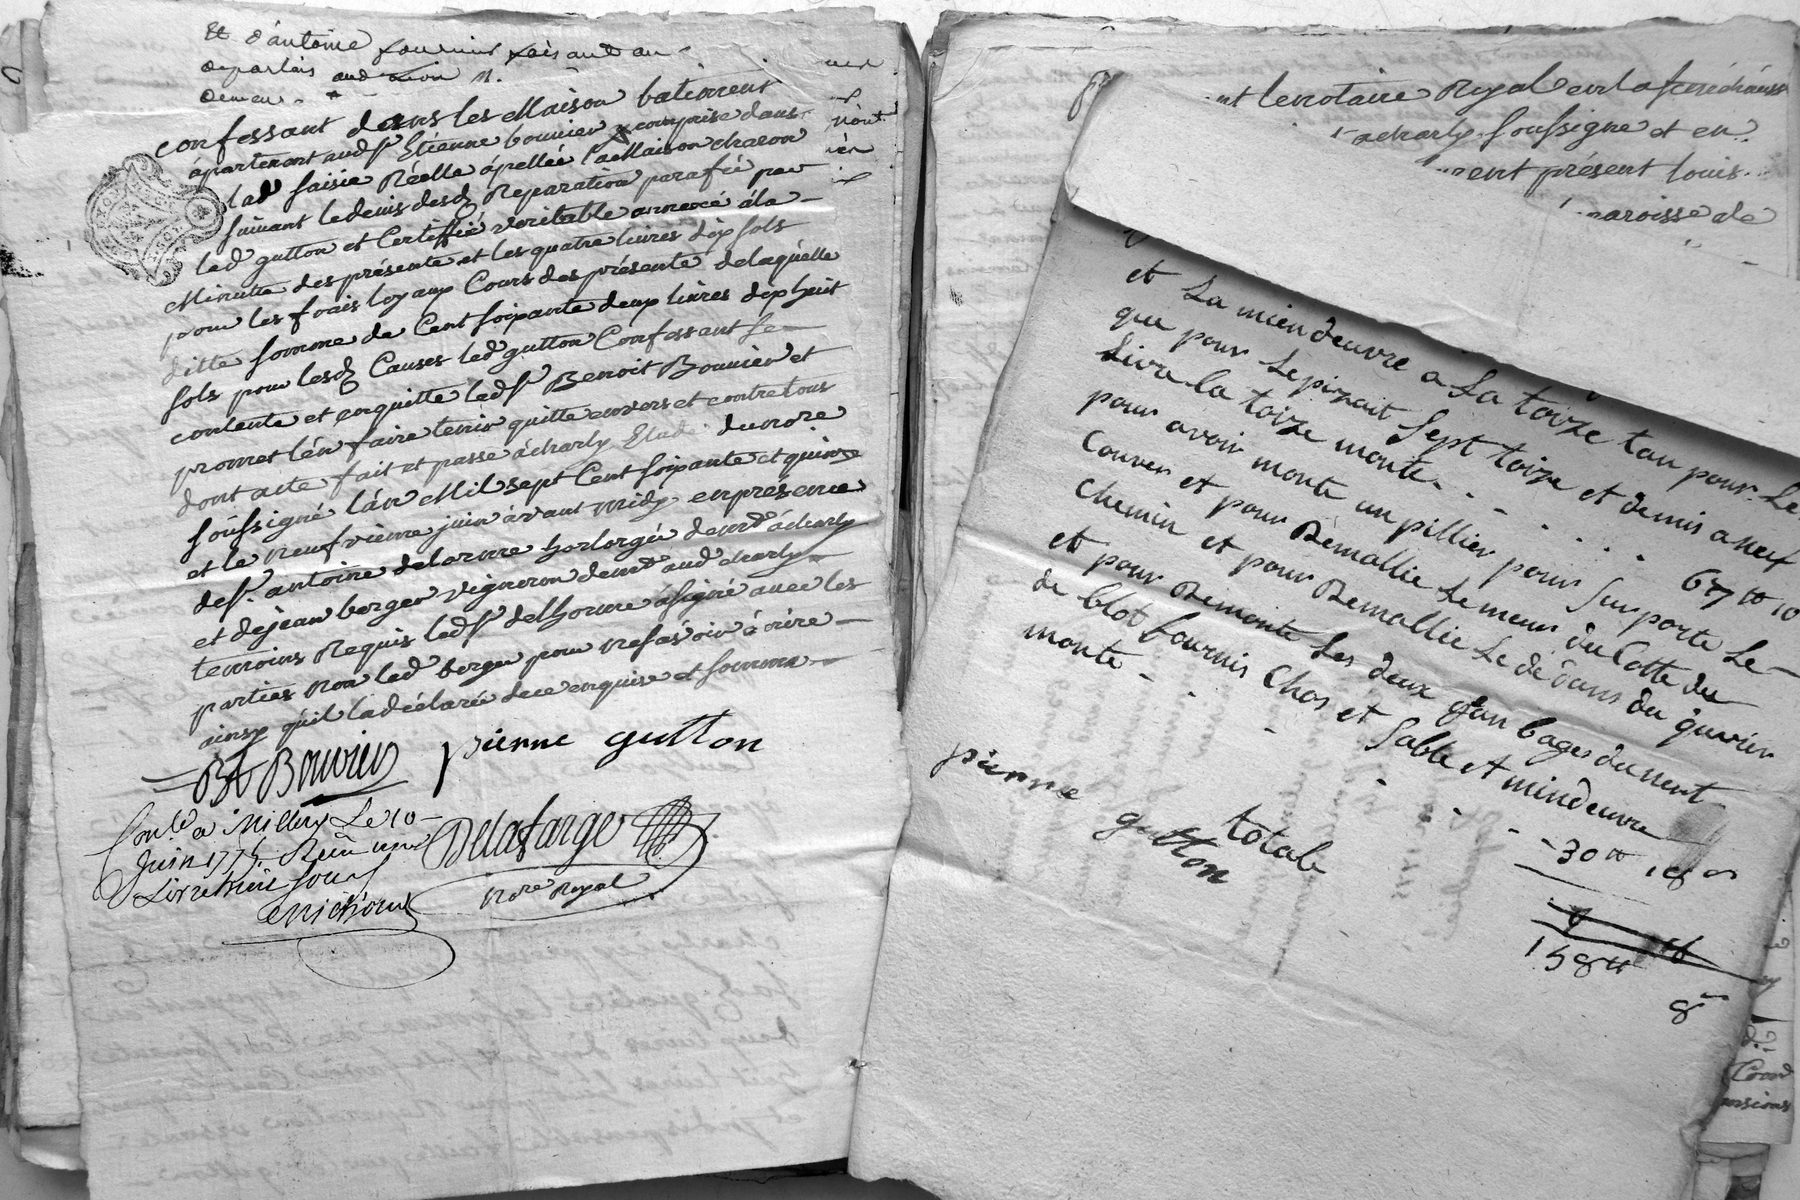 Et d'antoine
confessant dans les Maison batiment
apartenant aud sr Étienne bouvier comprise dans
lad saisie Réelle apellée la Maison charon
suivant le devis desd Reparation parafée par
led gutton et Certiffié veritable annexé ala
Minutte des présente et les quatre livres dix sols
pour les frais loyaux Cours des présente delaquelle
ditte somme de Cent soixante deux livres dix huit
sols pour lesd Causes led gutton Confessant se
contente et enquitte led sr Benoit Bouvier et
promet l'én faire tenir quitte envers et contre tous
dont acte fait et passé à charly Etude du nore
soussigné l'án Mil sept Cent soixante et quinze
et le neufvieme juin ávant midy en présence
de sr antoine delorme horlorgé demt á charly
et de jean berger vigneron demt aud charly
temoins Requis led sr delhorme á signé avec les
parties non led berger pour ne sávoir écrire
ainsy quil la déclaré de ce enquise et somme
Bt Bouvier pierre gutton
Conlé a Millery Le 10
Juin 1775. Reçu une
Livre huit sous
Delafarge
nore Royal
nt le notaire Royal en la sénécháuss
charly soussigné et en
rent présent louis
paroisse de
et La mien deuvre a La toize tan pour Le
que pour Le pizait Sept toize et demis a neuf
Livre la toize monte 67 tt 10
pour avoir monte un pillier pour suporte Le
Couver et pour Remallie Le meur du Cotte du
chemin et pour Remallie Le dedans du quvier
et pour Remonte Les deux jan bages du nent
de blot fournis Chos et Sable et mindeuvre
monte 30 tt 18 s
totale 158 tt 8
pierre gutton